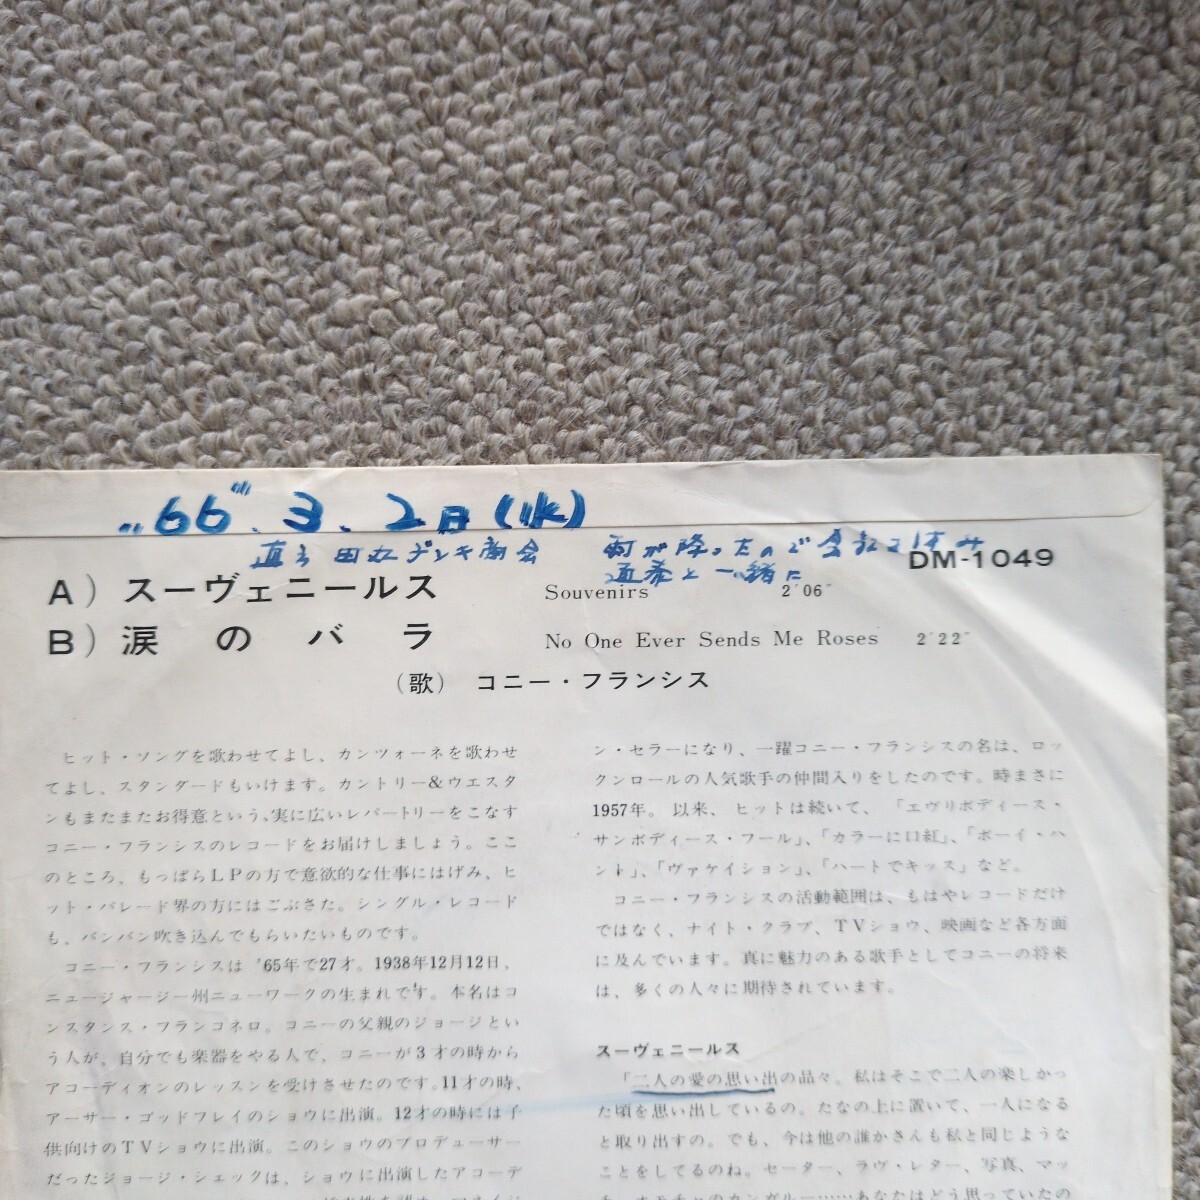 "66". 3. 2日(水)
デンキ商会 雨が降ったので
DM-1049
と一緒に
A) スーヴェニールス Souvenirs 2′06″
B) 涙のバラ No One Ever Sends Me Roses 2′22″
(歌) コニー・フランシス
ヒット・ソングを歌わせてよし、カンツォーネを歌わせ
てよし、スタンダードもいけます。カントリー&ウエスタ
ンもまたまたお得意という、実に広いレパートリーをこなす
コニー・フランシスのレコードをお届けしましょう。ここ
のところ、もっぱらLPの方で意欲的な仕事にはげみ、ヒ
ット・パレード界の方にはごぶさた。シングル・レコード
も、バンバン吹き込んでもらいたいものです。
コニー・フランシスは '65年で27才。1938年12月12日、
ニュージャージー州ニューワークの生まれです。本名はコ
ンスタンス・フランコネロ。コニーの父親のジョージとい
う人が、自分でも楽器をやる人で、コニーが3才の時から
アコーディオンのレッスンを受けさせたのです。11才の時、
アーサー・ゴッドフレイのショウに出演。12才の時には子
供向けのTVショウに出演。このショウのプロデューサー
だったジョージ・シェックは、ショウに出演したアコーデ
ン・セラーになり、一躍コニー・フランシスの名は、ロッ
クンロールの人気歌手の仲間入りをしたのです。時まさに
1957年。以来、ヒットは続いて、「エヴリボディース・
サンボディース・フール」、「カラーに口紅」、「ボーイ・ハ
ント」、「ヴァケイション」、「ハートでキッス」など。
コニー・フランシスの活動範囲は、もはやレコードだけ
ではなく、ナイト・クラブ、TVショウ、映画など各方面
に及んでいます。真に魅力のある歌手としてコニーの将来
は、多くの人々に期待されています。
スーヴェニールス
「二人の愛の思い出の品々。私はそこで二人の楽しかっ
た頃を思い出しているの。たなの上に置いて、一人になる
と取り出すの。でも、今は他の誰かさんも私と同じような
ことをしてるのね。セーター、ラヴ・レター、写真、マッ
チ、オモチャのカンガルー……あなたはどう思っていたの